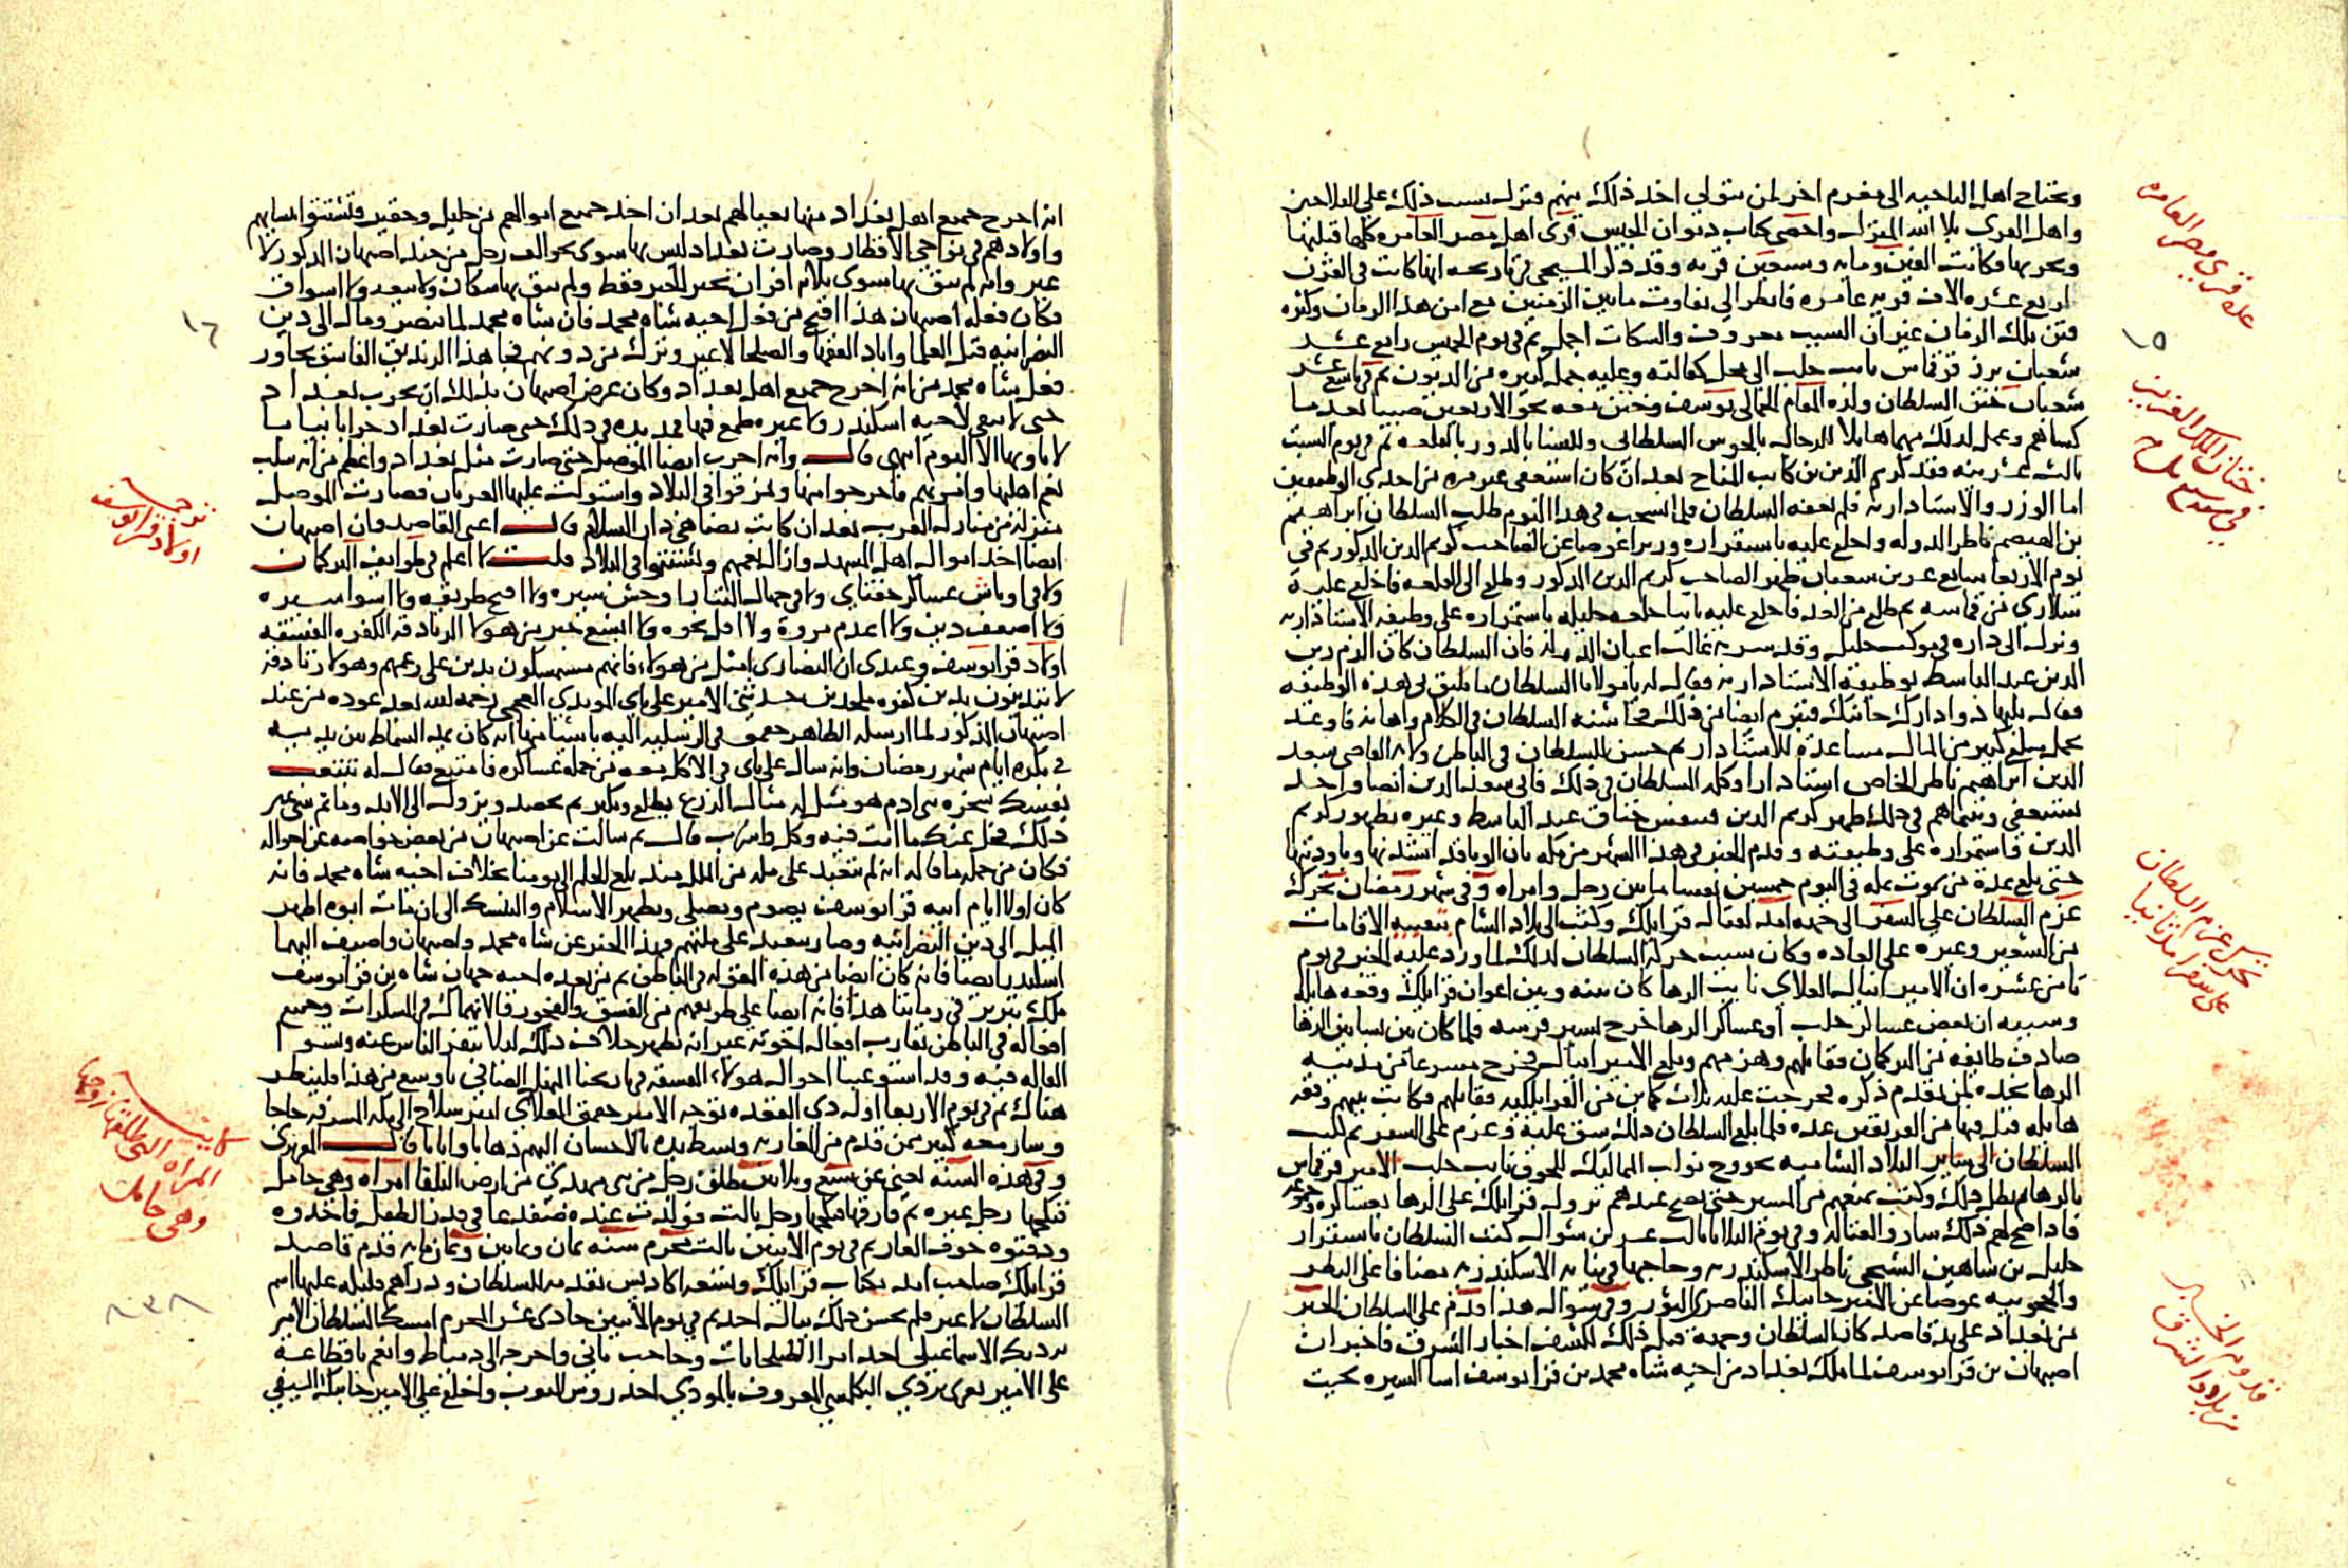 ويحتاج اهل الناحيه الى مغرم اخر لمن يتولى اخذ ذلك منهم فنزل بسبب ذلك على الفلاحين
واهل القرى بلا الله المنزل واحصى كتاب ديوان الجيش قرى اهل مصر العامره كلها قبليها
وبحريها فكانت الفين ومايه وسبعين قريه وقد ذكر المسبحى فى تاريخه انها كانت فى القرن
اربع عشره الاف قريه عامره فانظر الى تفاوت مابين الزمنين مع امن هذا الزمان وكثره
فتن ذلك الزمان غير ان السبب معروف والسكات اجمل ثم فى يوم الخميس رابع عشر
شعبان برز قرقماس نايب حلب الى محل كفالته وعليه جمله كبيره من الديون ثم فى تاسع عشر
شعبان ختن السلطان ولده المقام الجمالى يوسف وختن معه نحو الاربعين صبيا بعد ما
كساهم وعمل لذلك مهما هايلا للرجال بالحوش السلطانى وللنسا بالدور بالقلعه ثم فى يوم السبت
ثالث عشرينه فقد كريم الدين بن كاتب المناخ بعد ان كان استعفى غير مره من احدى الوظيفتين
اما الوزر والاستاداريه فلم يعفه السلطان فلما انسحب فى هذا اليوم طلب السلطان ابراهيم
بن الهيصم ناظر الدوله واخلع عليه باستقراره وزيرا عوضا عن الصاحب كريم الدين المذكور ثم فى
يوم الاربعا سابع عشرين شعبان ظهر الصاحب كريم الدين المذكور وطلع الى القلعه فاخلع عليه
سلارى من قماشه ثم طلع من الغد فاخلع عليه ثانيا خلعه جليله باستمراره على وظيفه الاستاداريه
ونزل الى داره فى موكب جليل وقد سر به غالب اعيان الدوله فان السلطان كان الزم زين
الدين عبد الباسط بوظيفه الاستاداريه فقال له يا مولانا السلطان ما يليق بى هذه الوظيفه
فقال يليها دوادارك جانبك فتبرم ايضا من ذلك فخاشنه السلطان فى الكلام واهانه فاوعد
بحمل مبلغ كبير من المال مساعدة للاستادار ثم حسن للسلطان فى الباطن ولايه القاضى سعد
الدين ابراهيم ناظر الخاص استادارا وكلمه السلطان فى ذلك فابى سعد الدين ايضا واخذ
يستعفى وبينما هم فى ذلك ظهر كريم الدين فتنفس خناق عبد الباسط وغيره بظهور كريم
الدين فاستمراره على وظيفته وقدم الخبر فى هذا الشهر من مكه بان الوبا قد اشتد بها وباوديتها
حتى بلغ عدة من يموت بمكه فى اليوم خمسين نفسا ما بين رجل وامراه وفى شهر رمضان تحرك
عزم السلطان على السفر الى جهه امد لقتال قرايلك وكتب الى بلاد الشام بتعبيه الاقامات
من الشعير وغيره على العاده وكان سبب حركه السلطان لذلك لما ورد عليه الخبر فى يوم
ثامن عشره ان الامير اينال العلاى نايب الرها كان بينه وبين اعوان قرايلك وقعه هايله
وسببه ان بعض عساكر حلب او عساكر الرها خرج يسير فرسه فلما كان بين بساتين الرها
صادف طايفه من التركمان فقاتلهم وهزمهم وبلغ الامير اينال فخرج مسرعا من مدينه
الرها نجده لمن تقدم ذكره فخرجت عليه ثلاث كماين من القرايلكيه فقاتلهم فكانت بينهم وقعه
هايله قتل فيها من الفريقين عده فلما بلغ السلطان ذلك شق عليه وعزم على السفر ثم كتب
السلطان الى ساير البلاد الشاميه بخروج نواب المماليك للحوق نايب حلب الامير قرقماس
بالرها ثم بطل ذلك وكتب بمنعهم من المسير حتى يصح عندهم نزول قرايلك على الرها بعساكره وجموعه
فاذا صح لهم ذلك ساروا لقتاله وفى يوم الثلاثا ثالث عشرين شوال كتب السلطان باستقرار
خليل بن شاهين الشيخى ناظر الاسكندريه وحاجبها فى نيابه الاسكندريه مضافا على النظر
والحجوبيه عوضا عن الامير جانبك الناصرى الثور وفى شوال هذا قدم على السلطان الخبر
من بغداد على يد قاصد كان السلطان وجهه قبل ذلك لكشف اخبار الشرق فاخبر ان
اصبهان بن قرايوسف لما ملك بغداد من اخيه شاه محمد بن قرايوسف اسا السيره بحيث
عده قرى مصر العامره
١٥
ختان الملك العزيز
تحرك عزم السلطان
على سفر امد ثانيا
قدوم الخبر
من بلاد الشرق
انه اخرج جميع اهل بغداد منها بعيالهم بعد ان اخذ جميع اموالهم من جليل وحقير فتشتتوا بنسايهم
واولادهم فى نواحى الاقطار وصارت بغداد ليس بها سوى نحو الف رجل من جند اصبهان المذكور لا
غير وانه لم يبق بها سوى ثلاثه افران تخبز الخبز فقط ولم يبق بها سكان ولا بيعه ولا اسواق
فكان فعل اصبهان هذا اقبح من فعل اخيه شاه محمد فان شاه محمد لما تنصر ومال الى دين
النصرانيه قتل العلما واباد الفقها والصلحا لا غير وترك من دونهم فجا هذا الزنديق الفاسق تجاوز
فعل شاه محمد من انه اخرج جميع اهل بغداد وكان غرض اصبهان بذلك ان يخرب بغداد
حتى لا يبقى لاخيه اسكندر ولا غيره طمع فيها فمد يده فى ذلك حتى صارت بغداد خرابا يبابا
لا ياويها الا البوم انتهى قال وانه اخرب ايضا الموصل حتى صارت مثل بغداد واعظم من انه سلب
نعم اهلها وامر بهم فاخرجوا منها وتمزقوا فى البلاد واستولت عليها العربان فصارت الموصل
منزله من منازل العرب بعد ان كانت تضاهى دار السلام قال اعنى القاصد وان اصبهان
ايضا اخذ اموال اهل المشهد وازال نعمهم وتشتتوا فى البلاد قلت لا اعلم فى طوايف التركمان
ولا فى اوباش عساكر جغتاى ولا فى جهال التتار اوحش سيره ولا اقبح طريقه ولا اسوا سيره
ولا اضعف دين ولا اعدم مروة ولا اقل نخوه ولا ابشع خبر من هولا الزنادقه الكفره الفسقه
اولاد قرايوسف وعندى ان النصارى امثل من هولاء فانهم متمسكون بدين على زعمهم وهولا زنادقه
لا يتدينون بدين كفره ملحدين حدثنى الامير على باى المويدى العجمى رحمه الله بعد عوده من عند
اصبهان المذكور لما ارسله الظاهر جقمق فى الرسليه اليه باشيا منها انه كان يمد السماط بين يديه
فى بكره ايام شهر رمضان وانه سال على باى فى الاكل معه من جمله عساكره فامتنع فقال له تتعب
نفسك بسخره بنى ادم هو مثل له مثال الزرع يطلع ويكبر ثم يحصد ويزول الى الابد وما ثم شى غير
ذلك فخل عنك ما انت فيه وكل واشرب قال ثم سالت عن اصبهان من بعض خواصه عن احواله
فكان من جمله ما قاله انه لم يتعبد على مله من الملل منذ بلغ الحلم الى يومنا بخلاف اخيه شاه محمد فانه
كان اولا ايام ابيه قرايوسف يصوم ويصلى ويظهر الاسلام والتنسك الى ان مات ابوه اظهر
الميل الى دين النصرانيه وصار يتعبد على ملتهم فهذا الخبر عن شاه محمد واصبهان واضيف اليهما
اسكندر ايضا فانه كان ايضا من هذه المقوله فى الباطن ثم من بعده اخيه جهان شاه بن قرايوسف
ملك تبريز فى زماننا هذا فانه ايضا على طريقهم من الفسق والفجور والانهماك فى المسكرات وجميع
افعاله فى الباطن تقارب افعال اخوته غير انه يظهر خلاف ذلك ليلا ينفر الناس عنه وتسوا
القاله فيه وقد استوعبنا احوال هولاء الفسقه فى تاريخنا المنهل الصافى باوسع من هذا فلينظر
هناك ثم فى يوم الاربعا اول ذى القعده توجه الامير جقمق العلاى امير سلاح الى مكه المشرفه حاجا
وسار معه كثير ممن قدم من المغاربه وبسط يده بالاحسان اليهم ذهابا وايابا قال المقريزى
وفى هذه السنه اعنى عن سبع وثلاثين طلق رجل من بنى مهدى من ارض البلقا امراه وهى حامل
فنكحها رجل غيره ثم فارقها فنكحها رجل ثالث فولدت عنده ضفدعا فى قدر الطفل فاخذوه
ودفنوه خوف العار ثم فى يوم الاثنين ثالث محرم سنه ثمان وثلاثين وثمانمايه قدم قاصد
قرايلك صاحب امد بكتاب قرايلك وتسعه اكاديش تقدمه للسلطان ودراهم قليله عليها اسم
السلطان لا غير فلم يحسن ذلك ببال احد ثم فى يوم الاثنين حادى عشر المحرم امسك السلطان الامير
بردبك الاسماعيلى احد امرا الطبلخانات وحاجب ثانى واخرجه الى دمياط وانعم باقطاعه
على الامير تغرى بردى البكلمشى المعروف بالموذى احد روس النوب واخلع على الامير جانبك السيفى
١٦
ترجمه
اولاد قرايوسف
المراه التى طلقها زوجها
وهى حامل
٨٣٨